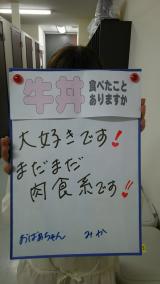 牛丼 食べたこと
ありますか
大好きです!
まだまだ
肉食系です!!
おばあちゃん みか